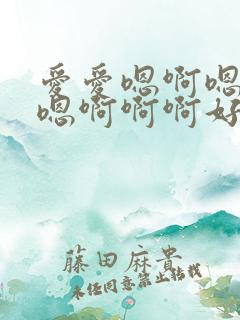 爱爱嗯啊嗯
嗯啊啊啊好
藤田麻贵
未经同意禁止转载